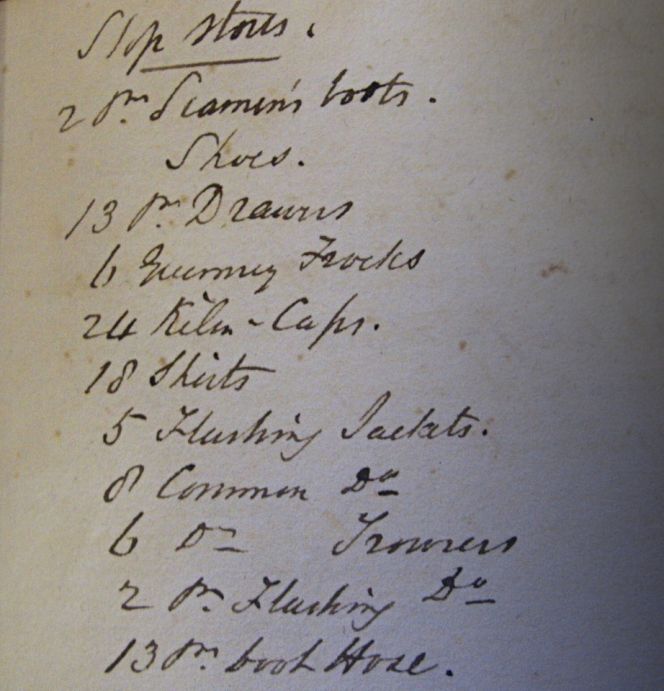 Slop stores.
2 Pr. Seamen's boots.
Shoes.
13 Pr. Drawers
6 Guernsey Frocks
24 Kilm- Caps.
18 Shirts
5 Flushing Jackets.
8 Common Do
6 Do Trowsers
2 Pr. Flushing Do
13 Pr. boot Hose.